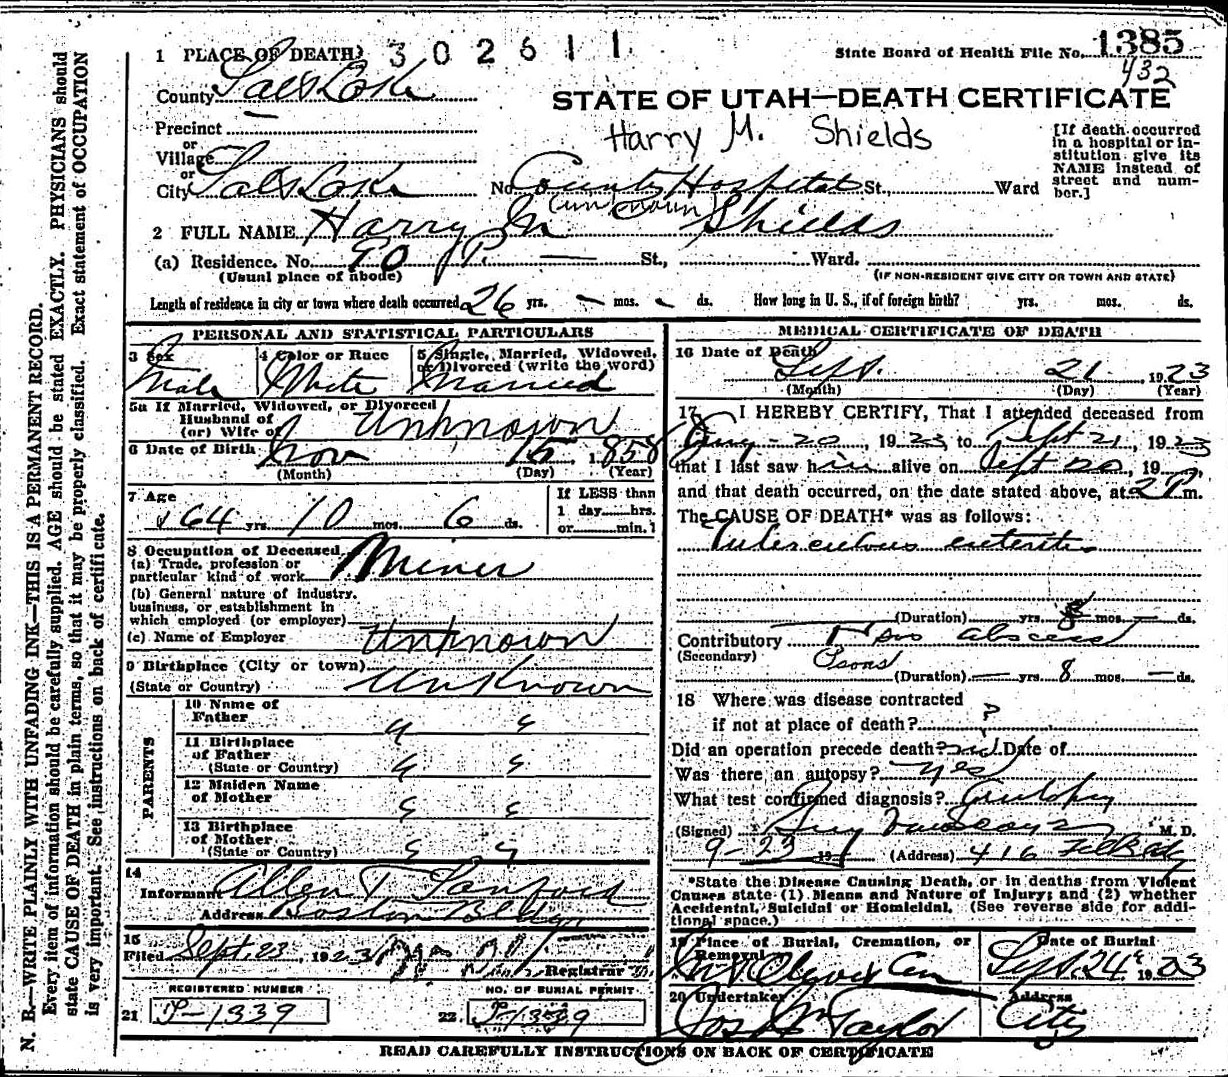 1 PLACE OF DEATH 302611
State Board of Health File No. 1385
432
County Salt Lake
STATE OF UTAH—DEATH CERTIFICATE
Harry M. Shields
Precinct
or
Village
or
City Salt Lake No. County Hospital St., Ward
[If death occurred in a hospital or in-
stitution give its
NAME instead of
street and num-
ber.]
(unknown)
2 FULL NAME Harry M Shields
(a) Residence. No. St., Ward.
(Usual place of abode) (IF NON-RESIDENT GIVE CITY OR TOWN AND STATE)
Length of residence in city or town where death occurred 26 yrs. — mos. — ds. How long in U. S., if of foreign birth? yrs. mos. ds.
PERSONAL AND STATISTICAL PARTICULARS
3 Sex
Male
4 Color or Race
White
5 Single, Married, Widowed,
or Divorced (write the word)
Married
5a If Married, Widowed, or Divorced
Husband of
(or) Wife of Unknown
6 Date of Birth Nov 15 1858
(Month) (Day) (Year)
7 Age
64 yrs. 10 mos. 6 ds.
If LESS than
1 day hrs.
or min.]
8 Occupation of Deceased
(a) Trade, profession or
particular kind of work Miner
(b) General nature of industry,
business, or establishment in
which employed (or employer)
(c) Name of Employer Unknown
9 Birthplace (City or town)
(State or Country) Unknown
PARENTS
10 Name of
Father
11 Birthplace
of Father
(State or Country)
12 Maiden Name
of Mother
13 Birthplace
of Mother
(State or Country)
14
Informant Allen T Sanford
Address Boston Bldg
15
Filed Sept. 23, 1923 Registrar
REGISTERED NUMBER NO. OF BURIAL PERMIT
21 P-1339 22. P-1339
MEDICAL CERTIFICATE OF DEATH
16 Date of Death
Sept. 21, 1923
(Month) (Day) (Year)
17 I HEREBY CERTIFY, That I attended deceased from
Aug-20, 1923 to Sept 21, 1923
that I last saw him alive on Sept 20, 19
and that death occurred, on the date stated above, at 2 P.m.
The CAUSE OF DEATH* was as follows:
Tuberculous enteritis
(Duration) yrs. 8 mos. — ds.
Contributory Psoas abscess
(Secondary) Psoas
(Duration) — yrs. 8 mos. — ds.
18 Where was disease contracted
if not at place of death? ?
Did an operation precede death? Date of
Was there an autopsy? Yes
What test confirmed diagnosis?
(Signed) M. D.
9-23 19 (Address) 416
*State the Disease Causing Death, or in deaths from Violent
Causes state (1) Means and Nature of Injury; and (2) whether
Accidental, Suicidal or Homicidal. (See reverse side for addi-
tional space.)
19 Place of Burial, Cremation, or
Removal
Mt Olivet Cem
Date of Burial
Sept. 24, 1923
20 Undertaker
Jos Wm Taylor
Address
City
READ CAREFULLY INSTRUCTIONS ON BACK OF CERTIFICATE
N. B.—WRITE PLAINLY WITH UNFADING INK—THIS IS A PERMANENT RECORD.
Every item of information should be carefully supplied. AGE should be stated EXACTLY. PHYSICIANS should
state CAUSE OF DEATH in plain terms, so that it may be properly classified. Exact statement of OCCUPATION
is very important. See instructions on back of certificate.